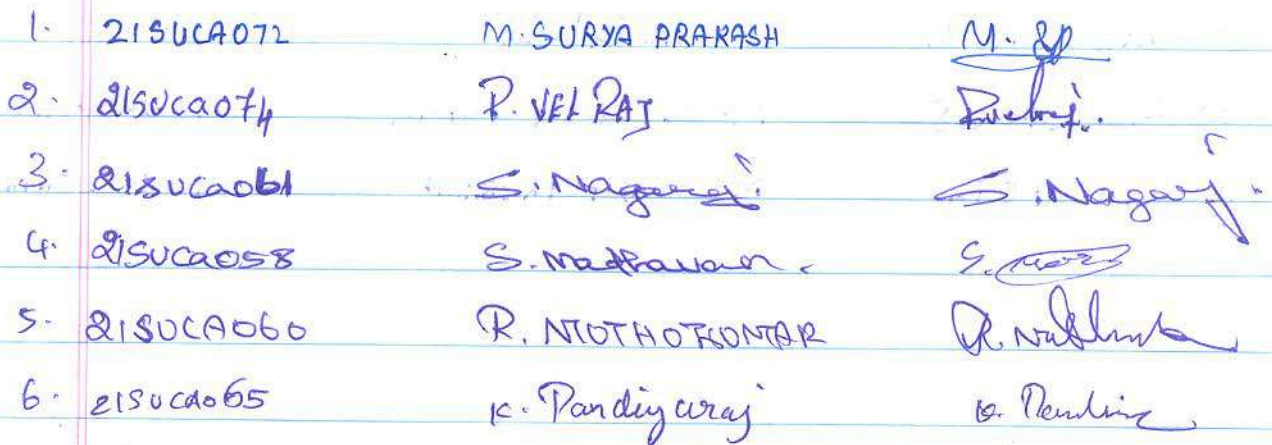 1. 21SUCA072 M. SURYA PRAKASH M. SP
2. 21SUCA074 P. VEL RAJ P.velraj.
3. 21SUCA061 S. Nagaraj. S. Nagaraj.
4. 21SUCA058 S. Madhavan. S.
5. 21SUCA060 R. MUTHUKUMAR R.
6. 21SUCA065 K. Pandiyaraj K.